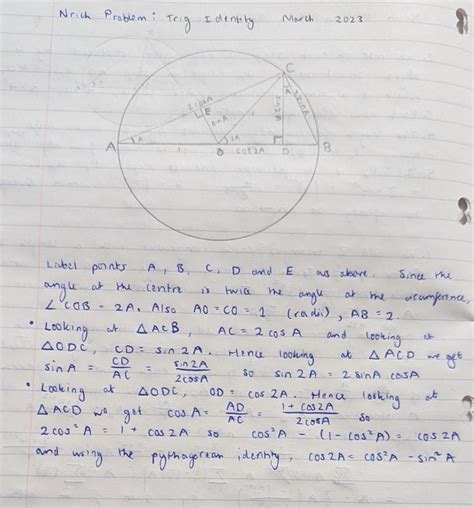 Nrich Problem: Trig Identity March 2023
C
A
2cosA
E
sinA
2sinA
sin2A
A
A
1
O
2A
cos2A
D
B
Label points A, B, C, D and E as above. Since the
angle at the centre is twice the angle at the circumference,
∠COB = 2A. Also AO=CO=1 (radii), AB=2.
• Looking at △ACB, AC = 2cosA and looking at
△ODC, CD = sin2A. Hence looking at △ACD we get
sinA = CD/AC = sin2A/2cosA so sin2A = 2sinA cosA
• Looking at △ODC, OD = cos2A. Hence looking at
△ACD we get cosA = AD/AC = 1+cos2A/2cosA so
2cos²A = 1 + cos2A so cos²A - (1-cos²A) = cos2A
and using the pythagorean identity, cos2A = cos²A - sin²A